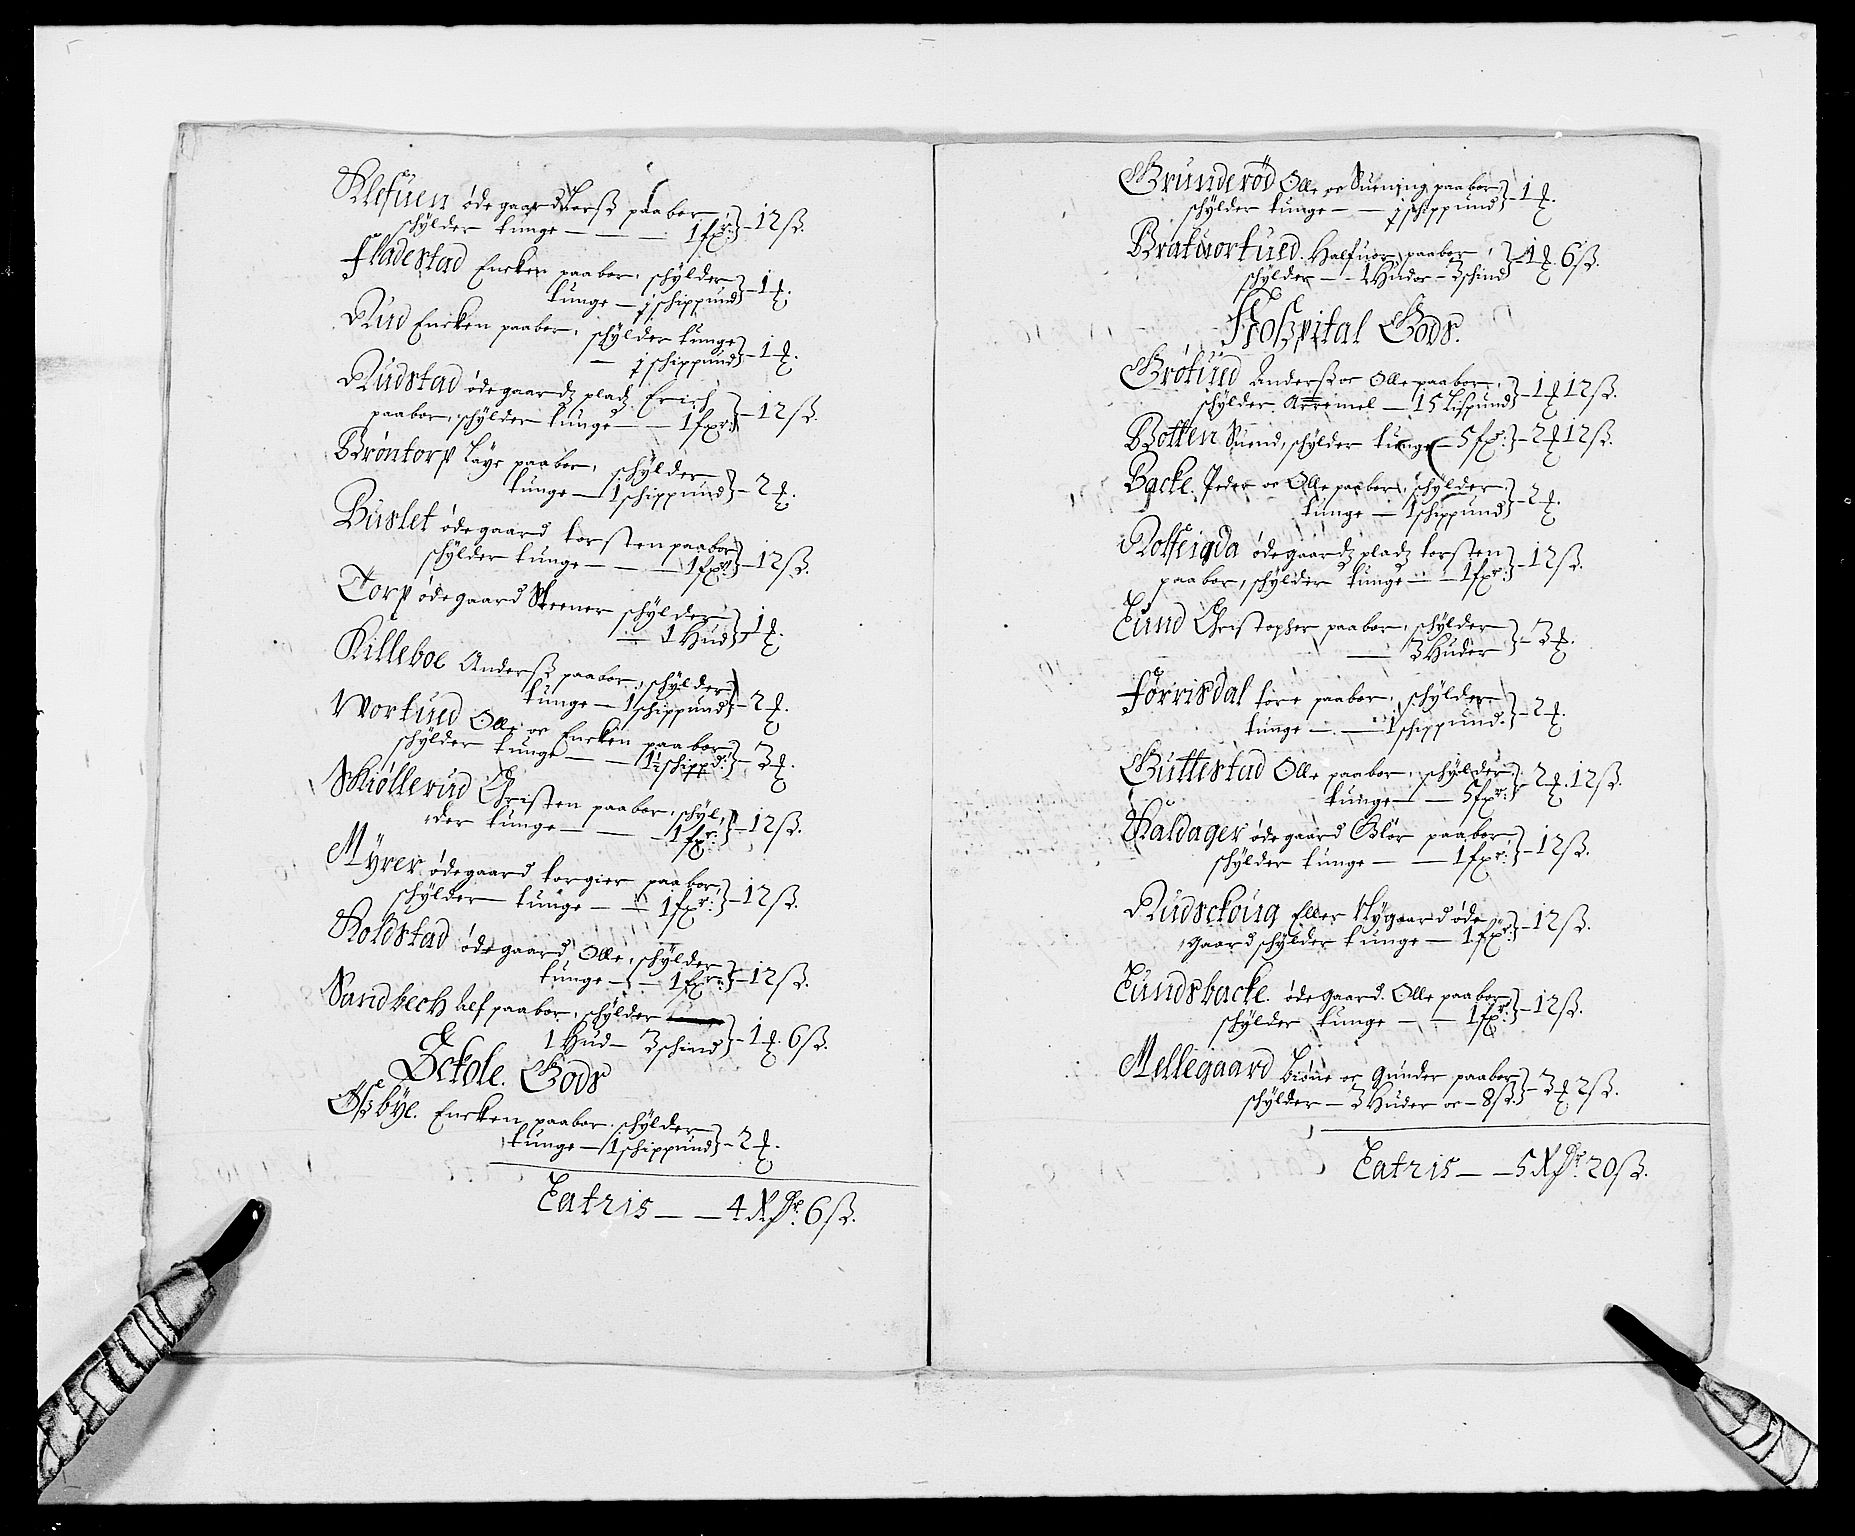 Klefuen ödegaard Lerß paabor
schÿlder tunge — — — 1 fxr: } – 12 ß.
Fladestad Encken paabor, schÿlder
tunge — j schippund } – 1 ℔.
Rud Encken paabor, schÿlder tunge
— j schippund } – 1 ℔.
Rudstad ödegaardz pladz Erich
paabor, schÿlder tunge — — 1 fxr: } – 12 ß.
Bröntorp Lÿ paabor, schÿlder
tunge — 1 schippund } – 2 ℔.
Büslet ödegaard torsten paabor
schÿlder tunge — — — 1 fxr } – 12 ß.
Torp ödegaard Steener schÿlder
— 1 Hud } 1 ℔.
Killeboe Anderß paabor, schÿlder
tunge — 1 schippund } – 2 ℔.
Wortued Olle oc Encken paabor
schÿlder tunge — — 1½ schippd: } – 3 ℔.
Skiöllerud Christen paabor, schÿl,
,der tunge — — — 1 fxr: } – 12 ß.
Mÿrer ödegaard torgier paabor,
schÿlder tunge — — 1 fxr: } – 12 ß.
Koldstad ödegaard, Olle, schÿlder
tunge — — 1 fxr: } – 12 ß.
Sandbech Alf paabor, schÿlder
1 Hud — 3 schind } – 1 ℔. 6 ß.
Schole. Gods
Oßbÿl. Encken paabor. schÿlder
tunge — 1 schippund } – 2 ℔.
Latris — — 4 Rdr. 6 ß.
Grunderöd Olle oc Suening paabor,
schÿlder tunge — — j schippund } – 1 ℔.
Bratuortued. Halfuor paabor
schÿlder — – 1 Hudor – 3 schind } – 1 ℔. 6 ß.
Hoßpital Gods.
Grötued Anderß oc Olle paabor,
schÿlder. Arremel — 15 Lispund } – 1 ℔ 12 ß.
Botten Suend, schÿlder tunge — 5 fxr: } – 2 ℔ 12 ß.
Backe. Peder oc Olle paabor, schÿlder
tunge — 1 schippund } – 2 ℔.
Rolfeigda ödegaardz pladz torsten
paabor, schÿlder tunge — — 1 fxr: } – 12 ß.
Lund Christopher paabor, schÿlder
— 3 Huder } – 3 ℔.
Förrisdal tore paabor, schÿlder
tunge — . — 1 schippund. } – 2 ℔.
Guttestad Olle paabor, schÿlder
tunge — — 5 fxr: } – 2 ℔. 12 ß.
Kaldager ödegaard Elör paabor
schÿlder tunge — — 1 fxr: } – 12 ß.
Rudschoug Eller Nÿgaard öde,
,gaard schÿlder tunge — 1 fxr: } – 12 ß.
Lundsbacke. ödegaard. Olle paaboer
schÿlder tunge — — 1 fxr: } – 12 ß.
Mellegaard Biöne oc Gunder paaboer
schÿlder — 3 Huder oc — 8 ß. } – 3 ℔ 2 ß.
Latris — — 5 Rdr 20 ß.